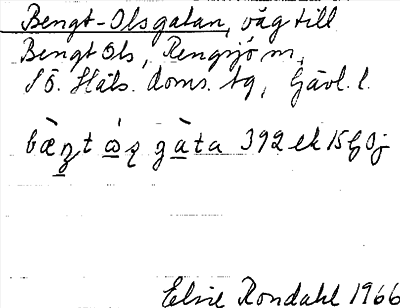 Bengt-Olsgatan, väg till
Bengt Ols, Rengsjö sn,
SÖ. Häls. doms. tg, Gävl. l.
bæ̀ṇt ὼṣ gàta 392 ek 15 g 0j
Elsie Rondahl 1966